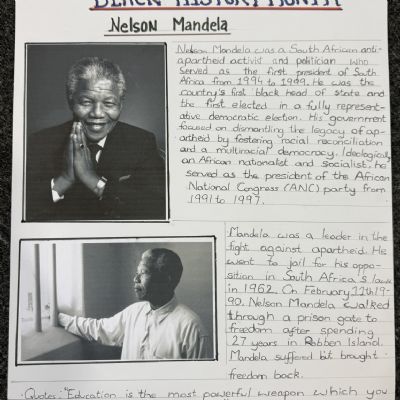 BLACK HISTORY MONTH
Nelson Mandela
Nelson Mandela was a South African anti-
apartheid activist and politician who
served as the first president of South
Africa from 1994 to 1999. He was the
country's first black head of state and
the first elected in a fully represent-
ative democratic election. His government
focused on dismantling the legacy of ap-
artheid by fostering racial reconciliation
and a multiracial democracy. Ideologically
an African nationalist and socialist, he
served as the president of the African
National Congress (ANC) party from
1991 to 1997.
Mandela was a leader in the
fight against apartheid. He
went to jail for his oppo-
sition in South Africa's laws
in 1962. On February 11th 19-
90. Nelson Mandela walked
through a prison gate to
freedom after spending
27 years in Robben Island.
Mandela suffered but brought
freedom back.
· Quotes: "Education is the most powerful weapon which you